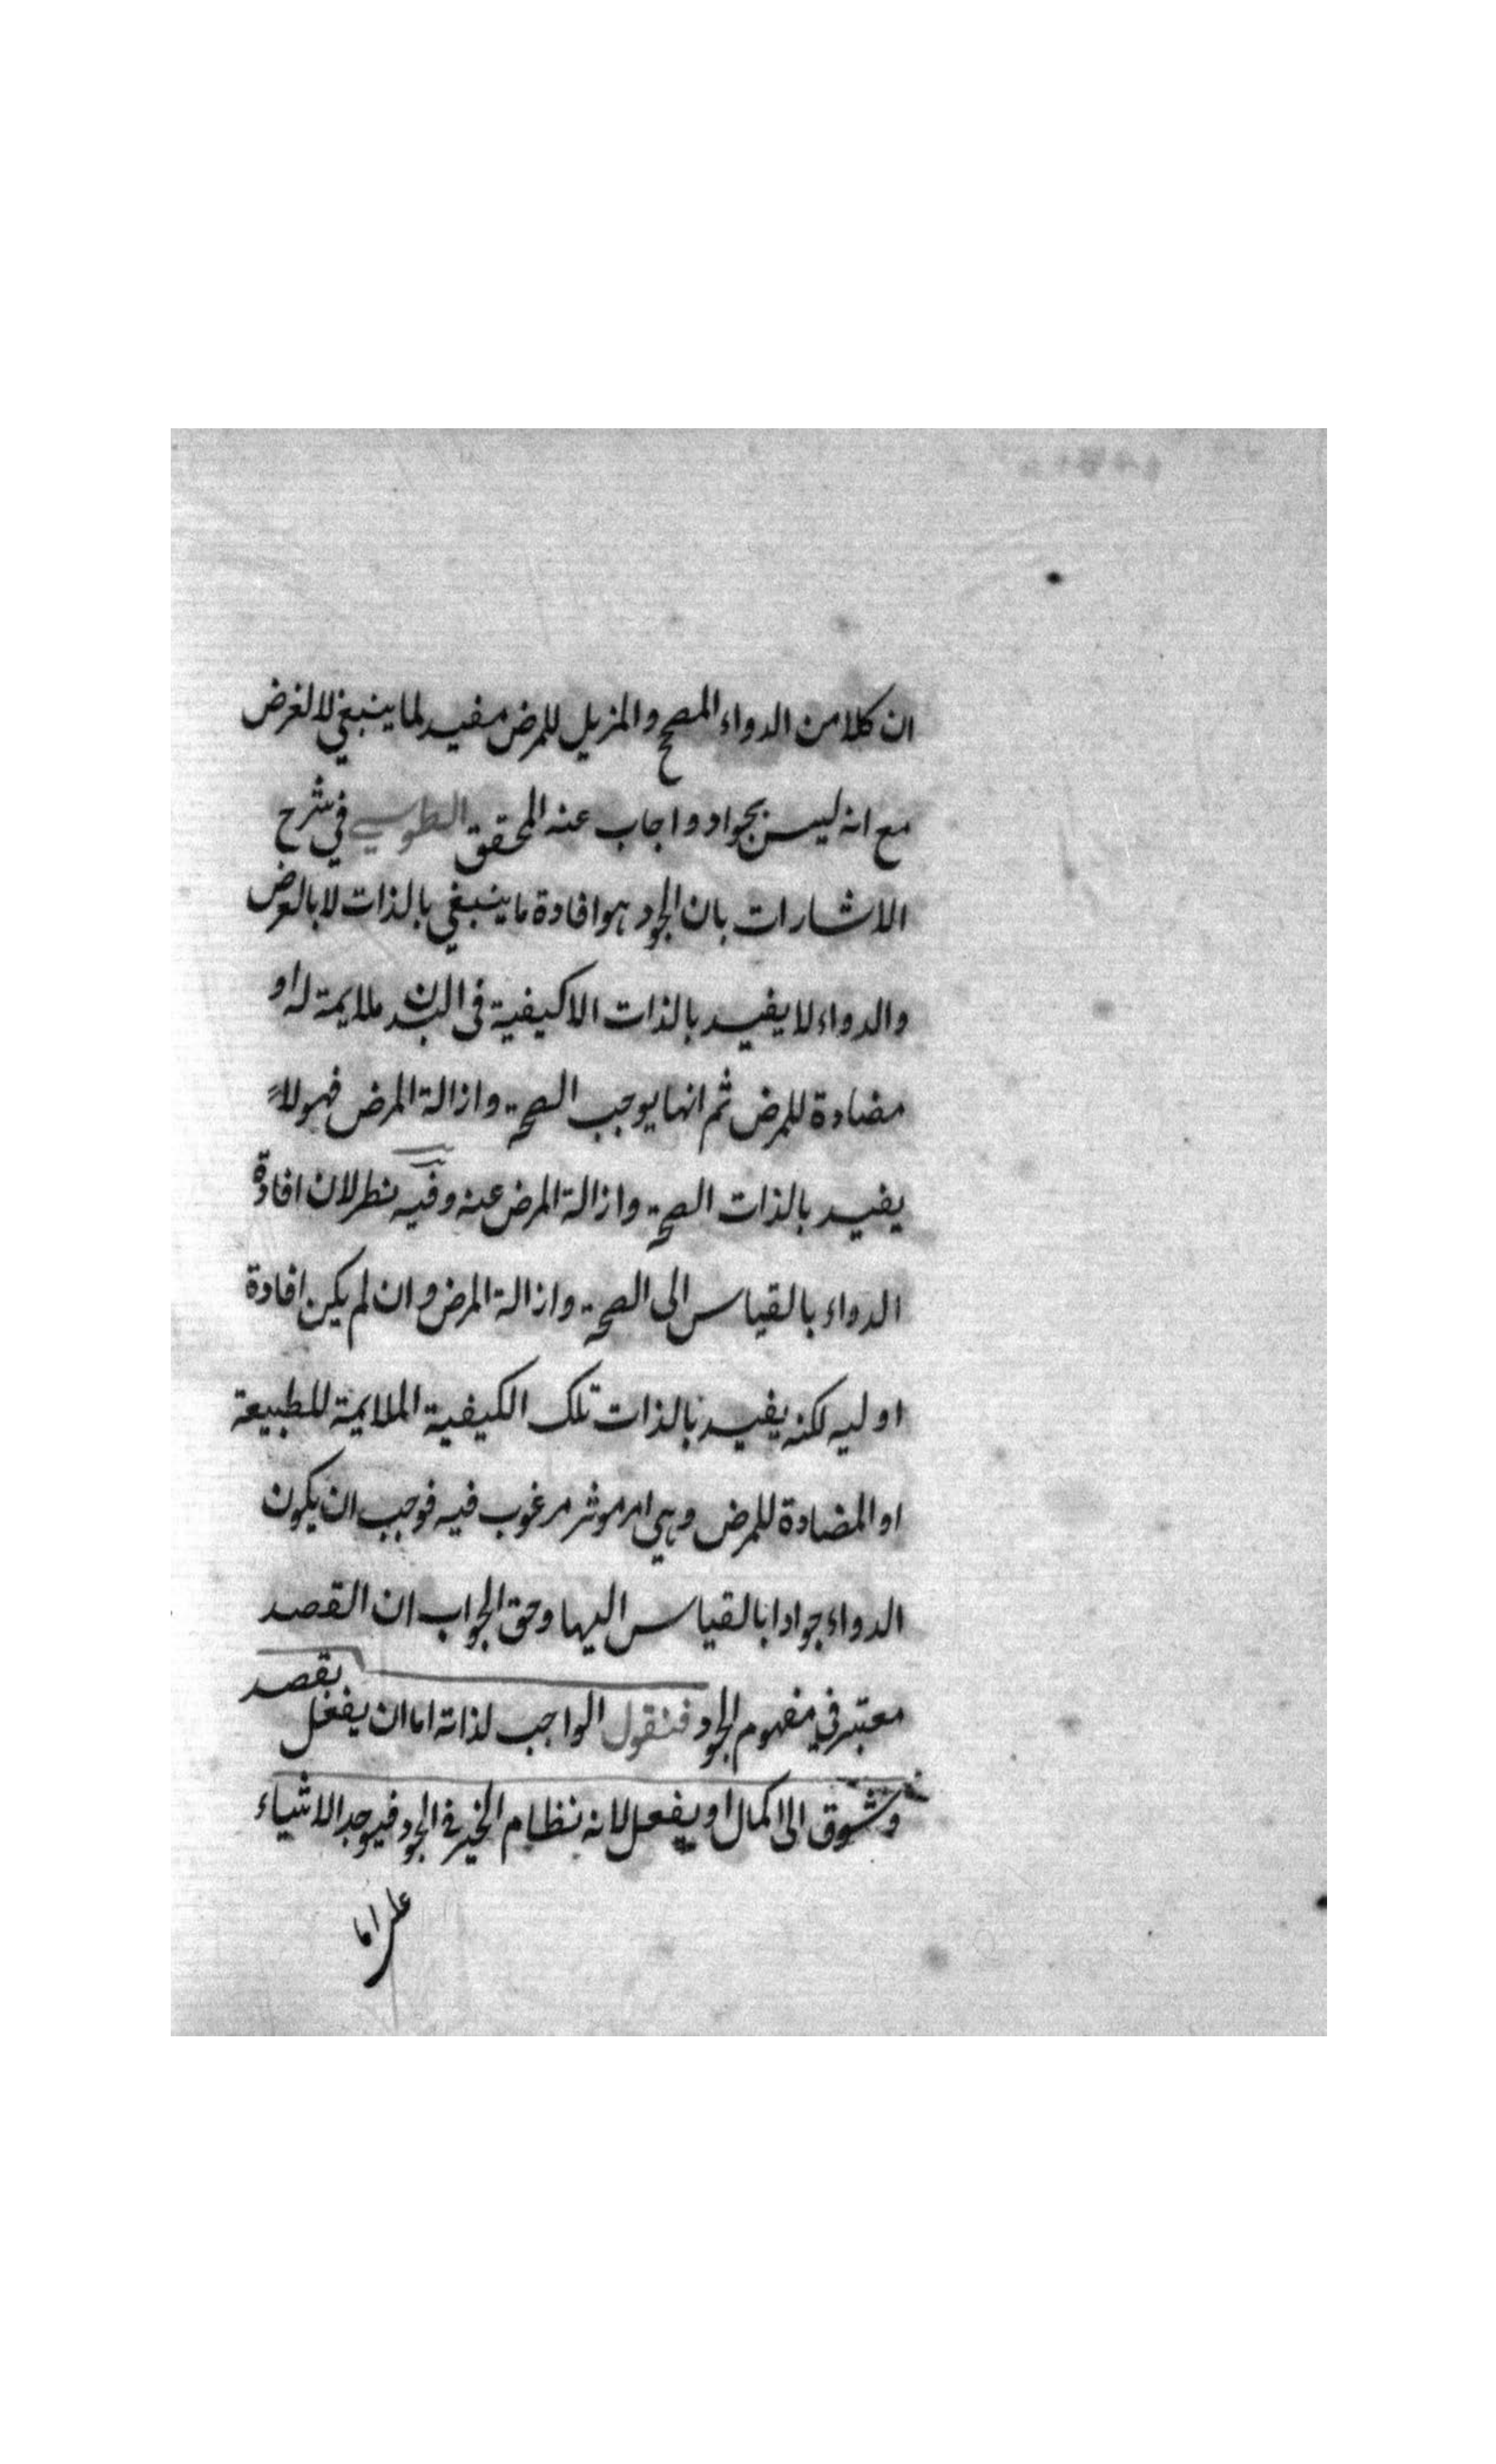 ان كلا من الدواء المصحح والمزيل للمرض مفيد لما ينبغي لا لغرض
مع انه ليس بجواد واجاب عنه المحقق الطوسي في شرح
الاشارات بان الجود هو افادة ما ينبغي بالذات لا بالعرض
والدواء لا يفيد بالذات الا كيفية فى البدن ملايمة له او
مضادة للمرض ثم انها يوجب الصحة وازالة المرض فهو لا
يفيد بالذات الصحة وازالة المرض عنه وفيه نظر لان افادة
الدواء بالقياس الى الصحة وازالة المرض وان لم يكن افادة
اوليه لكنه يفيد بالذات تلك الكيفية الملايمة للطبيعة
او المضادة للمرض وهي امر موثر مرغوب فيه فوجب ان يكون
الدواء جوادا بالقياس اليها وحق الجواب ان القصد
معتبر في مفهوم الجود فنقول الواجب لذاته اما ان يفعل بقصد
وشوق الى كمال او يفعل لانه نظام الخير في الجود فيوجد الاشياء
على ما